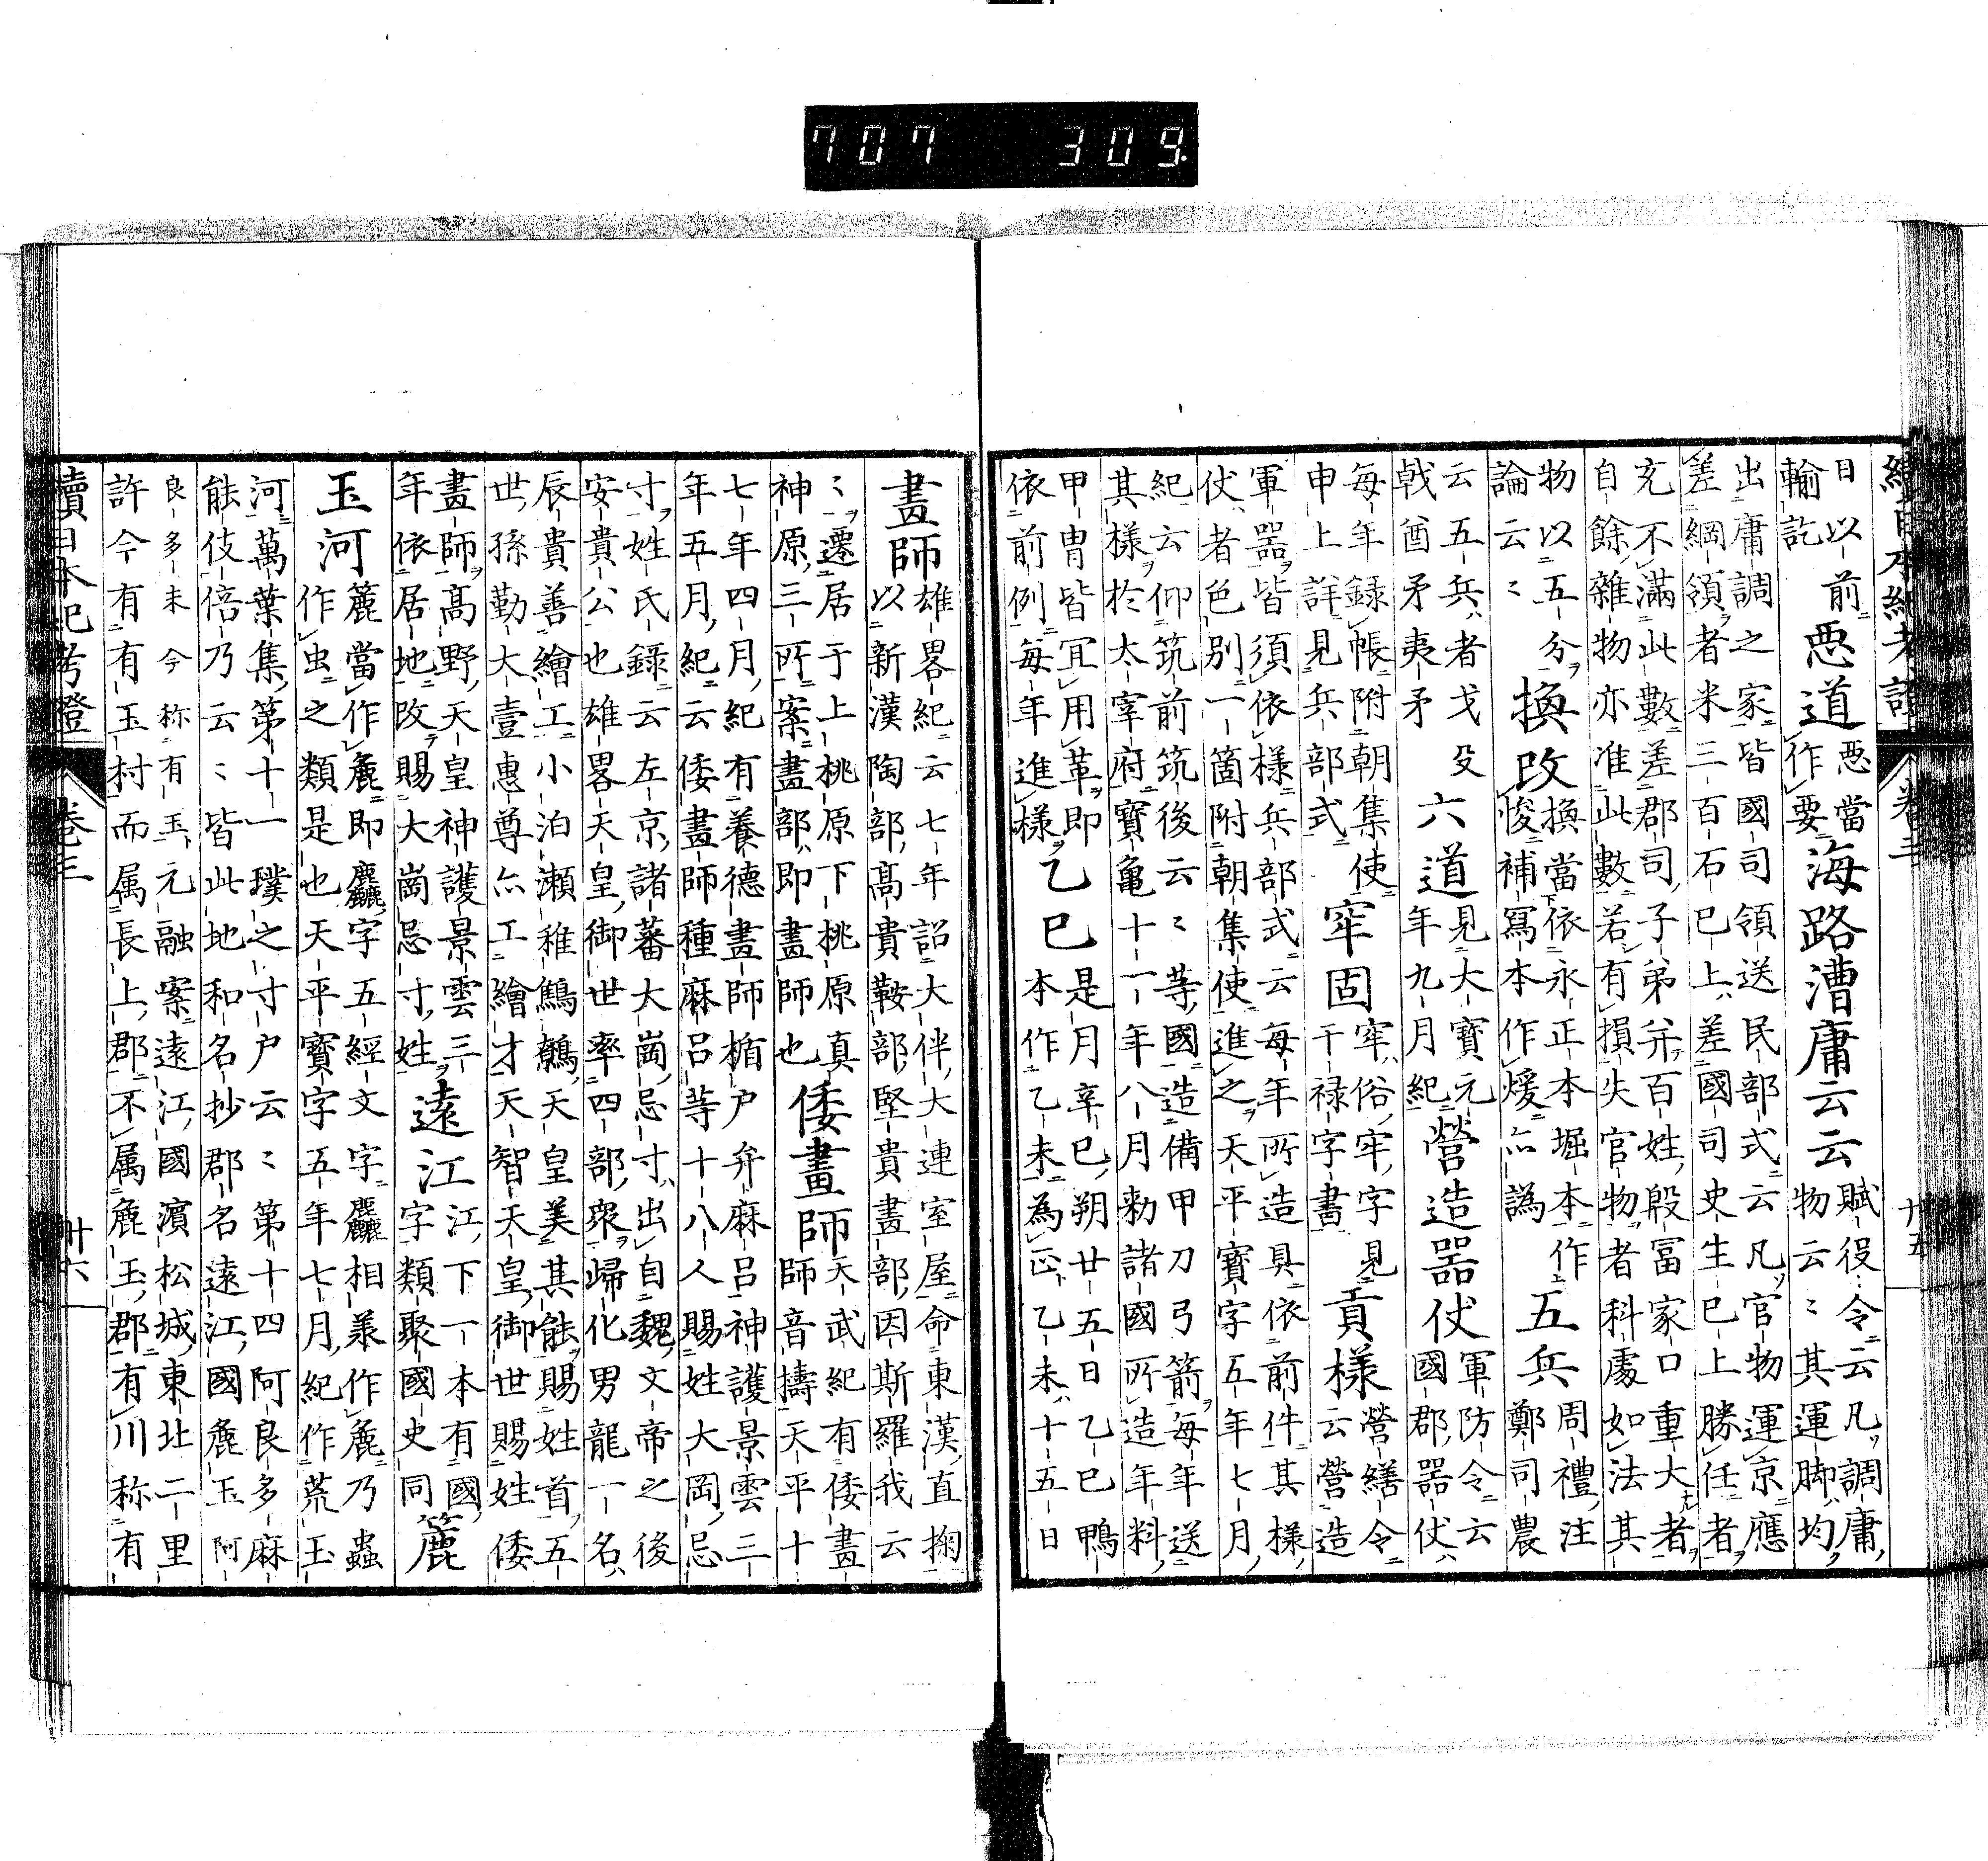 707 309.
續日本紀考證 卷三 廿五
日以前
輸訖
悪道
悪當
作要
海路漕庸云云
賦役令云凡調庸
物云〻其運脚均
出庸調之家皆國司領送民部式云凡官物運京應
差綱領者米三百石已上差國司史生已上勝任者
充不滿此數差郡司子弟并百姓殷冨家口重大者
自餘雜物亦准此數若有損失官物者科處如法其
物以五分
論云〻
換改
換當依永正本堀本作
悛補冩本作煖亦譌
五兵
周禮注
鄭司農
云五兵者戈殳
戟酋矛夷矛
六道
見大寶元
年九月紀
營造器仗
軍防令云
國郡器仗
每年録帳附朝集使
申上詳見兵部式
牢固
牢俗牢字見
干禄字書
貢樣
營繕令
云營造
軍器皆須依樣兵部式云每年所造具依前件其樣
仗者色別一箇附朝集使進之天平寶字五年七月
紀云仰筑前筑後云〻等國造備甲刀弓箭每年送
其樣於太宰府寶亀十一年八月勅諸國所造年料
甲冑皆冝用革即
依前例每年進樣
乙巳
是月辛巳朔廿五日乙巳鴨
本作乙未為正乙未十五日
畫師
雄畧紀云七年詔大伴大連室屋命東漢直掬
以新漢陶部髙貴鞍部堅貴畫部因斯羅我云
〻遷居于上桃原下桃原真
神原三所案畫部即畫師也
倭畫師
天武紀有倭畫
師音檮天平十
七年四月紀有養德畫師楯戸弁麻呂神護景雲三
年五月紀云倭畫師種麻呂等十八人賜姓大岡忌
寸姓氏録云左京諸蕃大崗忌寸出自魏文帝之後
安貴公也雄畧天皇御世率四部衆歸化男龍一名
辰貴善繪工小泊瀬稚鷦鷯天皇美其能賜姓首五
世孫勤大壹惠尊亦工繪才天智天皇御世賜姓倭
畫師髙野天皇神護景雲三
年依居地改賜大崗忌寸姓
遠江
江下一本有國
字類聚國史同
麁
玉河
麁當作麁即麤字五經文字麤相羕作麁乃蟲
作虫之類是也天平寶字五年七月紀作荒玉
河萬葉集第十一璞之寸戸云〻第十四阿良多麻
能伎倍乃云〻皆此地和名抄郡名遠江國麁玉阿
良多末今称有玉元融案遠江國濱松城東北二里
許今有有玉村而属長上郡不属麁玉郡有川称有
續日本紀考證 卷三 廿六